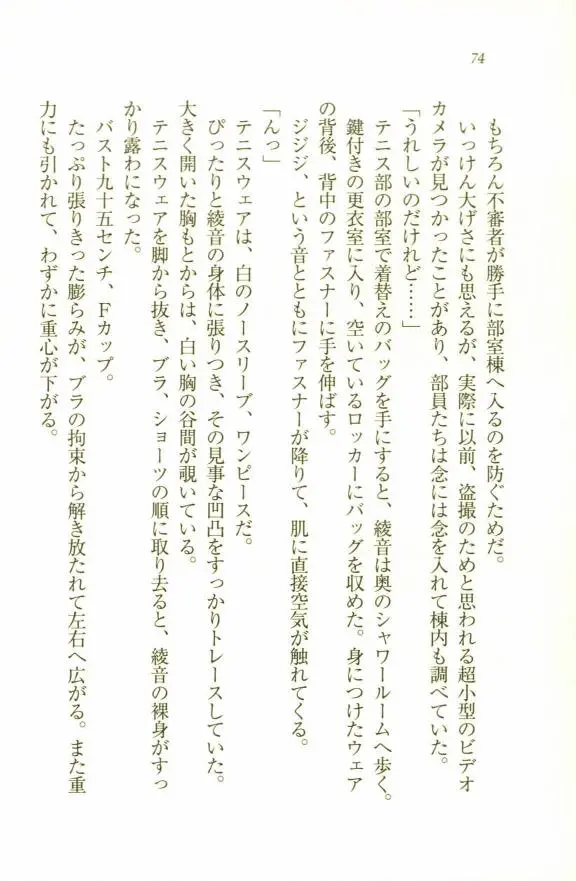 74
もちろん不審者が勝手に部室棟へ入るのを防ぐためだ。
いっけん大げさにも思えるが、実際に以前、盗撮のためと思われる超小型のビデオ
カメラが見つかったことがあり、部員たちは念には念を入れて棟内も調べていた。
「うれしいのだけれど……」
テニス部の部室で着替えのバッグを手にすると、綾音は奥のシャワールームへ歩く。
鍵付きの更衣室に入り、空いているロッカーにバッグを収めた。身につけたウェア
の背後、背中のファスナーに手を伸ばす。
ジジジ、という音とともにファスナーが降りて、肌に直接空気が触れてくる。
「んっ」
テニスウェアは、白のノースリーブ、ワンピースだ。
ぴったりと綾音の身体に張りつき、その見事な凹凸をすっかりトレースしていた。
大きく開いた胸もとからは、白い胸の谷間が覗いている。
テニスウェアを脚から抜き、ブラ、ショーツの順に取り去ると、綾音の裸身がすっ
かり露わになった。
バスト九十五センチ、Fカップ。
たっぷり張りきった膨らみが、ブラの拘束から解き放たれて左右へ広がる。また重
力にも引かれて、わずかに重心が下がる。